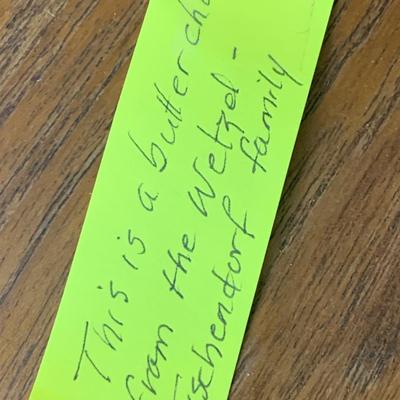 This is a butterch
from the Wetzel-
schendorf family